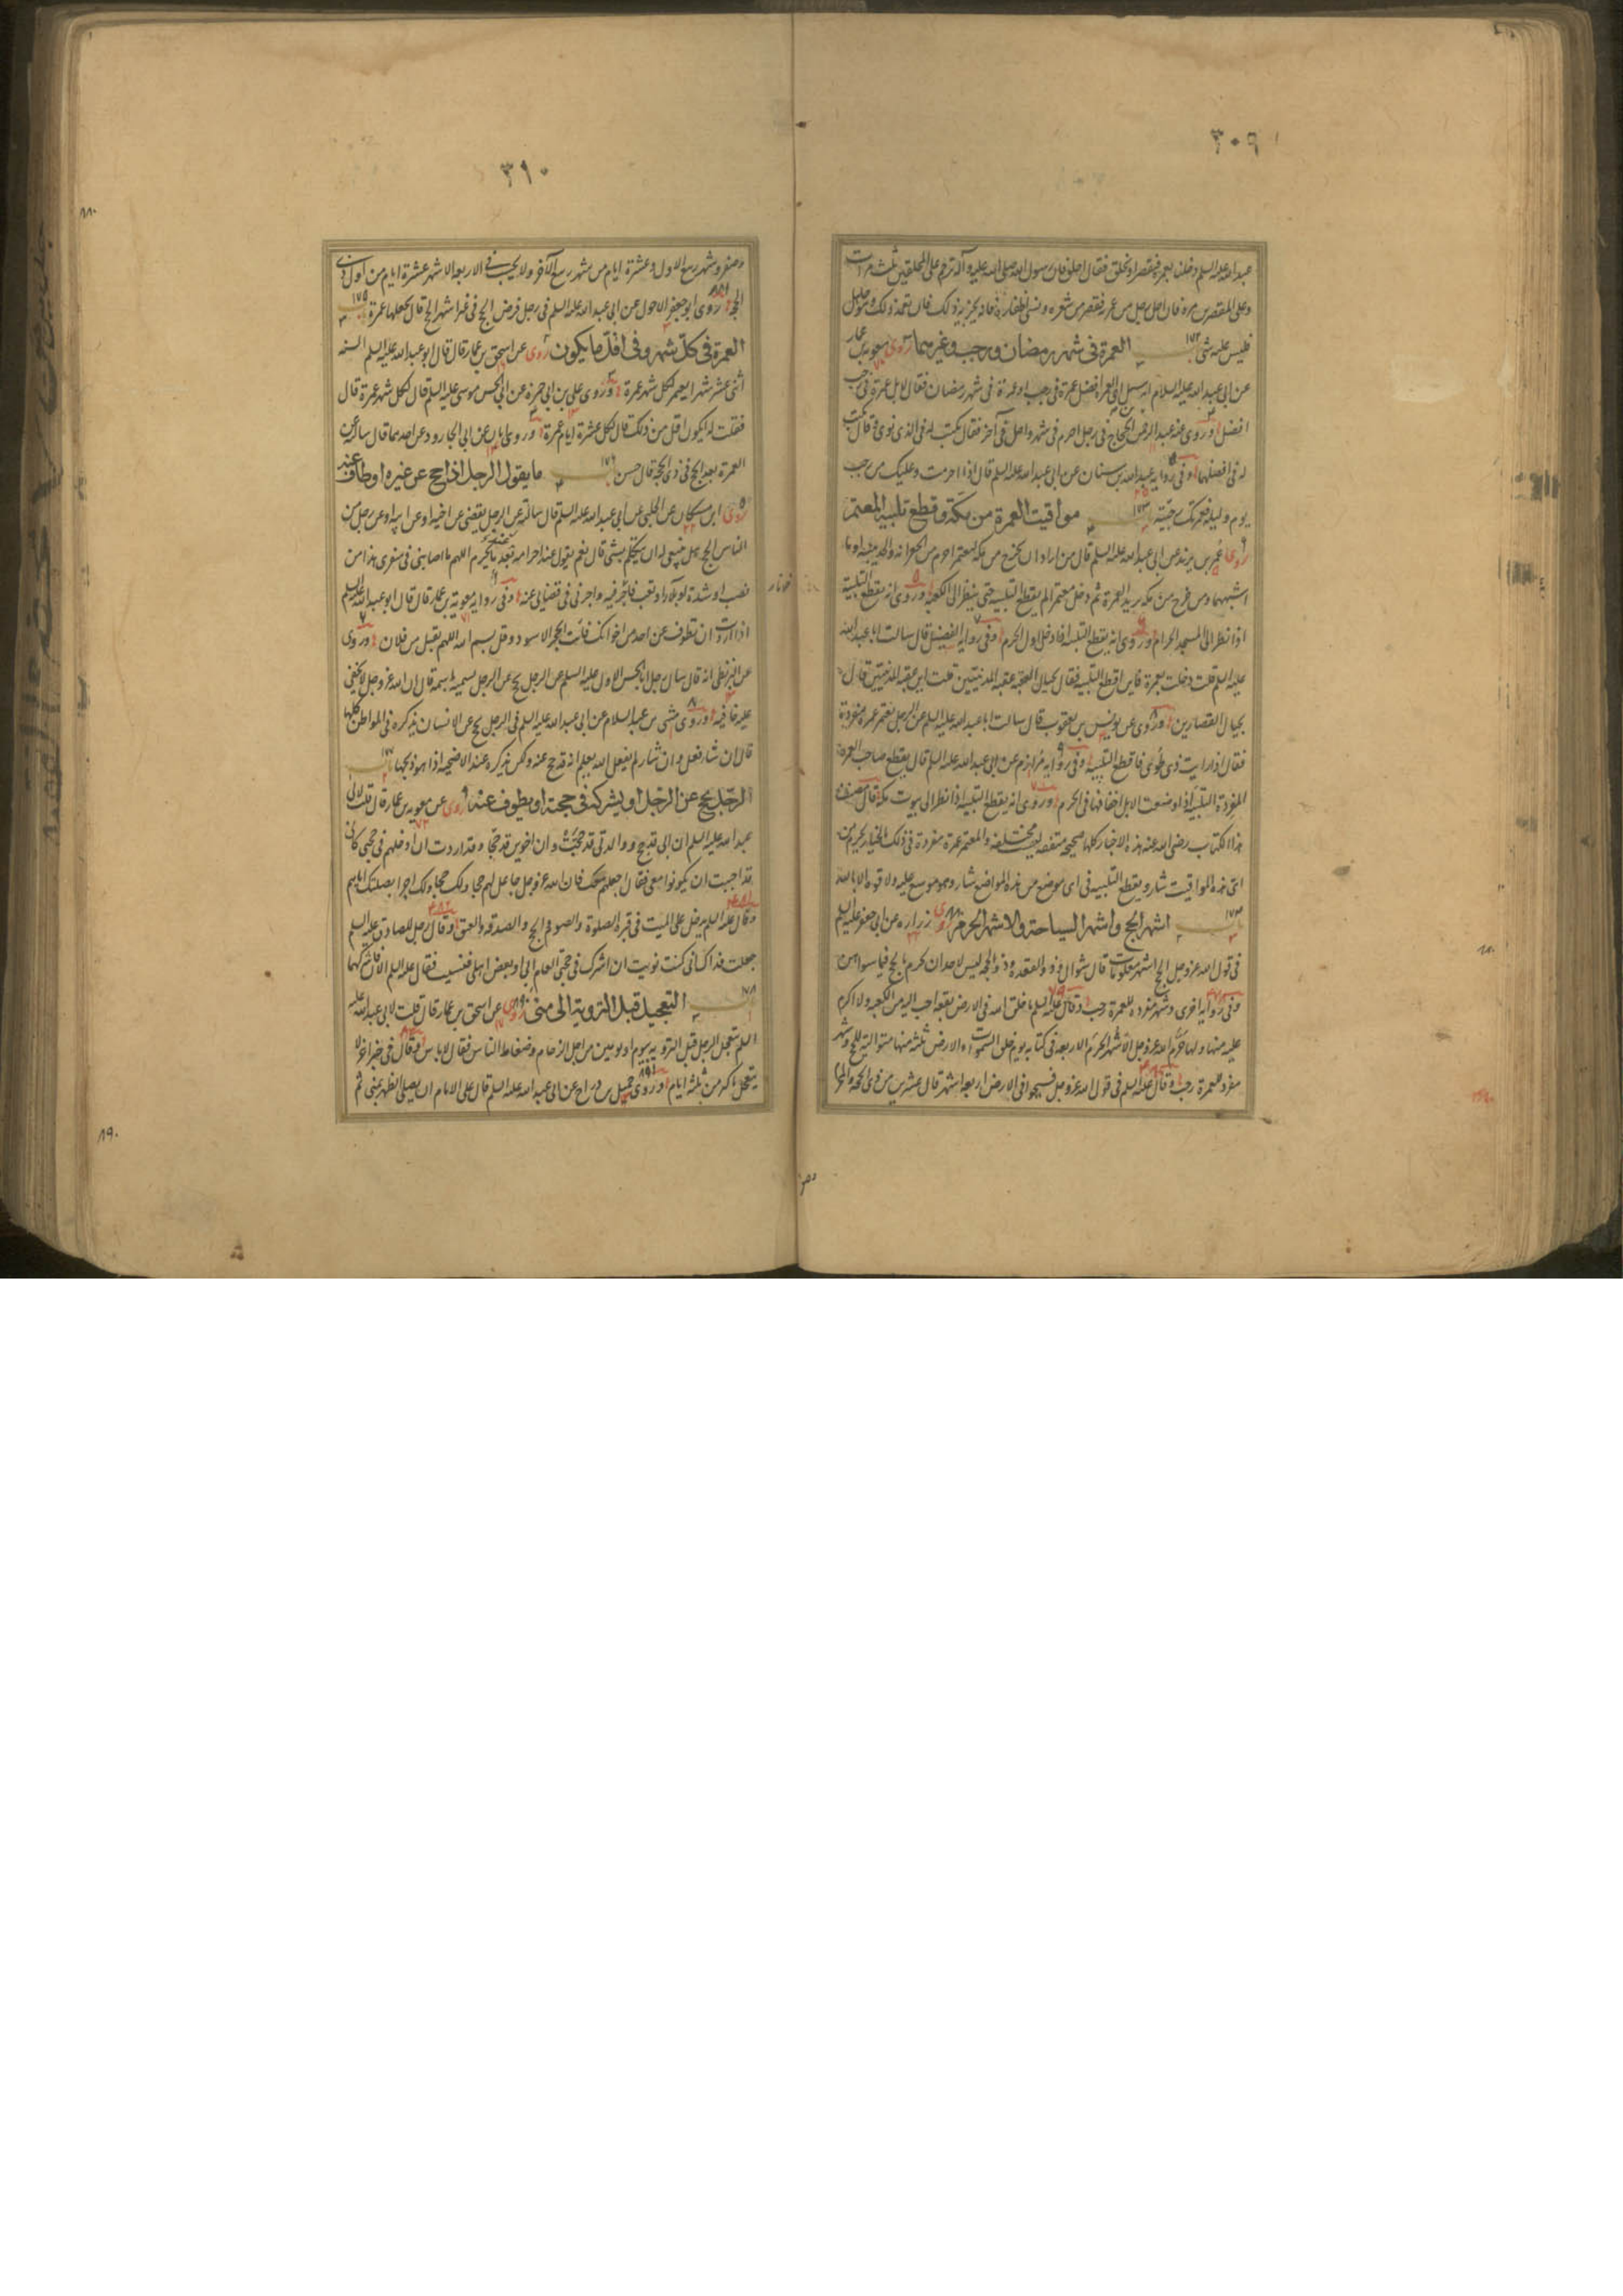 ٣٠٩
عبد الله عليه السلم دخلنا بعمرة فنقصر او نحلق فقال احلق فان رسول الله صلى الله عليه وآله ترحم على المحلقين ثلث مرات
وعلى المقصرين مرة قال احل رجل من عمرته فقصر من شعره ونسى اظفاره فانه يجزيه ذلك فان تعمد ذلك وهو جاهل
فليس عليه شئ باب ١٧٢ العمرة فى شهر رمضان ورجب وغيرهما روى معوية بن عمار
عن ابى عبد الله عليه السلام انه سئل اى العمرة افضل عمرة فى رجب او عمرة فى شهر رمضان فقال لا بل عمرة فى رجب
افضل وروى عنه عبد الرحمن بن الحجاج فى رجل احرم فى شهر واحل فى آخر فقال يكتب له فى الذى نوى وقال يكتب
له فى افضلهما وفى رواية عبد الله بن سنان عن ابى عبد الله عليه السلم قال اذا احرمت وعليك من رجب
يوم وليلة فعمرتك رجبية باب ١٧٣ مواقيت العمرة من مكة وقطع تلبية المعتمر
روى عمر بن يزيد عن ابى عبد الله عليه السلم قال من اراد ان يخرج من مكة ليعتمر احرم من الجعرانة والحديبية او ما
اشبههما ومن خرج من مكة يريد العمرة ثم دخل معتمرا لم يقطع التلبية حتى ينظر الى الكعبة وروى انه يقطع التلبية
اذا نظر الى المسجد الحرام وروى انه يقطع التلبية اذا دخل اول الحرم وفى رواية الفضيل قال سالت ابا عبد الله
عليه السلم قلت دخلت بعمرة فاين اقطع التلبية فقال بحيال العقبة عقبة المدنيين قلت اين عقبة المدنيين قال
بحيال القصارين وروى عن يونس بن يعقوب قال سالت ابا عبد الله عليه السلم عن الرجل يعتمر عمرة مفردة
فقال اذا رايت ذى طوى فاقطع التلبية وفى رواية مرازم عن ابى عبد الله عليه السلم قال يقطع صاحب العمرة
المفردة التلبية اذا وضعت الابل اخفافها فى الحرم وروى انه يقطع التلبية اذا نظر الى بيوت مكة قال مصنف
هذا الكتاب رضى الله عنه هذه الاخبار كلها صحيحة متفقة ليست بمختلفة والمعتمر عمرة مفردة فى ذلك بالخيار يحرم من
اى هذه المواقيت شاء ويقطع التلبية فى اى موضع من هذه المواضع شاء وهو موسع عليه ولا قوة الا بالله
باب ١٧٤ اشهر الحج واشهر السياحة والاشهر الحرم روى زرارة عن ابى جعفر عليه السلم
فى قول الله عز وجل الحج اشهر معلومات قال شوال وذو القعدة وذو الحجة ليس لاحد ان يحرم بالحج فيما سواهن
وفى رواية اخرى وشهر مفرد للعمرة رجب وقال عليه السلم ما خلق الله فى الارض بقعة احب اليه من الكعبة ولا اكرم
عليه منها ولها حرم الله عز وجل الاشهر الحرم الاربعة فى كتابه يوم خلق السموات والارض ثلثة منها متوالية للحج وشهر
مفرد للعمرة رجب وقال عليه السلم فى قول الله عز وجل فسيحوا فى الارض اربعة اشهر قال عشرين من ذى الحجة والمحرم
٣١٠
وصفر وشهر ربيع الاول وعشرة ايام من شهر ربيع الآخر ولا يحسب فى الاربعة الاشهر عشرة ايام من اول ذى
الحجة روى ابو جعفر الاحول عن ابى عبد الله عليه السلم فى رجل فرض الحج فى غير اشهر الحج قال يجعلها عمرة باب ١٧٥
العمرة فى كل شهر وفى اقل ما يكون روى عن اسحق بن عمار قال قال ابو عبد الله عليه السلم السنة
اثنى عشر شهرا يعتمر لكل شهر عمرة وروى على بن ابى حمزة عن ابى الحسن موسى عليه السلم قال لكل شهر عمرة قال
فقلت له ايكون اقل من ذلك قال لكل عشرة ايام عمرة وروى ابان عن ابى الجارود عن احدهما قال سالته عن
العمرة بعد الحج فى ذى الحجة قال حسن باب ١٧٦ ما يقول الرجل اذا حج عن غيره او طاف عنه
روى ابن مسكان عن الحلبى عن ابى عبد الله عليه السلم قال سالته عن الرجل يقضى عن اخيه او عن ابيه او عن رجل من
الناس الحج هل ينبغى له ان يتكلم بشئ قال نعم يقول عند احرامه بعد ما يحرم اللهم ما اصابنى فى سفرى هذا من
نصب او شدة او بلاء او تعب فآجر فيه واجرنى فى قضائى عنه وفى رواية معوية بن عمار قال قال ابو عبد الله عليه السلم
اذا اردت ان تطوف عن احد من اخوانك فأت الحجر الاسود وقل بسم الله اللهم تقبل من فلان وروى
عن البزنطى انه قال سال رجل ابا الحسن الاول عليه السلم عن الرجل يحج عن الرجل يسميه باسمه قال ان الله عز وجل لا يخفى
عليه خافية وروى مثنى بن عبد السلام عن ابى عبد الله عليه السلم فى الرجل يحج عن الانسان يذكره فى المواطن كلها
قال ان شاء فعل وان شاء لم يفعل الله يعلم انه قد حج عنه ولكن يذكره عند الاضحية اذا هو ذبحها باب ١٧٧
الرجل يحج عن الرجل او يشركه فى حجته او يطوف عنه روى عن معوية بن عمار قال قلت لابى
عبد الله عليه السلم ان ابى قد حج ووالدتى قد حجت وان اخوىّ قد حجا وقد اردت ان ادخلهم فى حجتى كانى
قد احببت ان يكونوا معى فقال اجعلهم معك فان الله عز وجل جاعل لهم حجا ولك حجا ولك اجرا بصلتك اياهم
وقال عليه السلم يدخل على الميت فى قبره الصلوة والصوم والحج والصدقة والعتق وقال رجل للصادق عليه السلم
جعلت فداك انى كنت نويت ان اشرك فى حجتى العام ابى او بعض اهلى فنسيت فقال عليه السلم الآن فاشركهما
باب ١٧٨ التعجيل قبل التروية الى منى روى عن اسحق بن عمار قال قلت لابى عبد الله عليه
السلم يتعجل الرجل قبل التروية بيوم او يومين من اجل الزحام وضغاط الناس فقال لا باس وقال فى خبر آخر لا
يتعجل باكثر من ثلثة ايام وروى جميل بن دراج عن ابى عبد الله عليه السلم قال على الامام ان يصلى الظهر بمنى ثم
وصفر